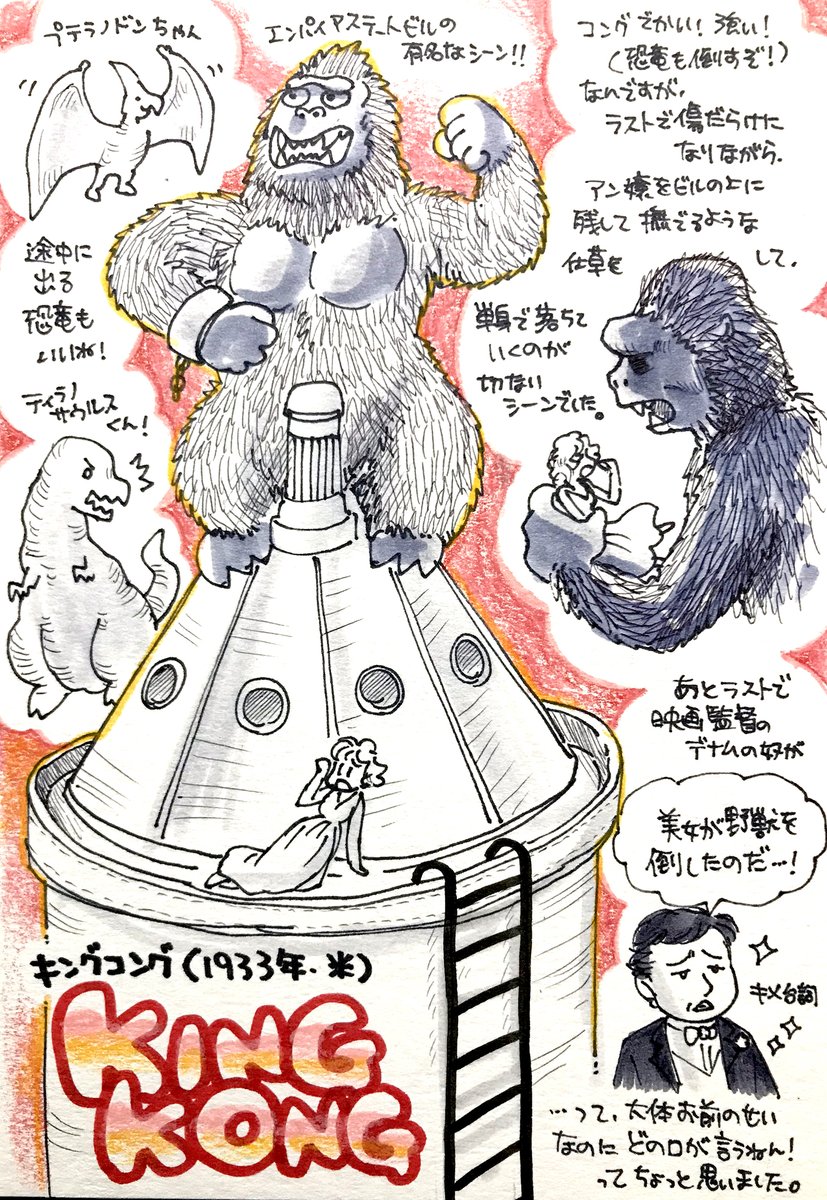 プテラノドンちゃん
エンパイアステートビルの
有名なシーン!!
コングでかい!強い!
(恐竜も倒すぞ!)
なんですが、
ラストで傷だらけに
なりながら、
アン嬢をビルの上に
残して撫でるような
仕草をして、
単身で落ちて
いくのが
切ない
シーンでした。
途中に
出る
恐竜も
いいね!
ティラノ
サウルス
くん!
あとラストで
映画監督の
デナムの奴が
美女が野獣を
倒したのだ…!
キメ台詞
…って、大体お前のせい
なのにどの口が言うねん!
ってちょっと思いました。
キングコング(1933年・米)
KING
KONG